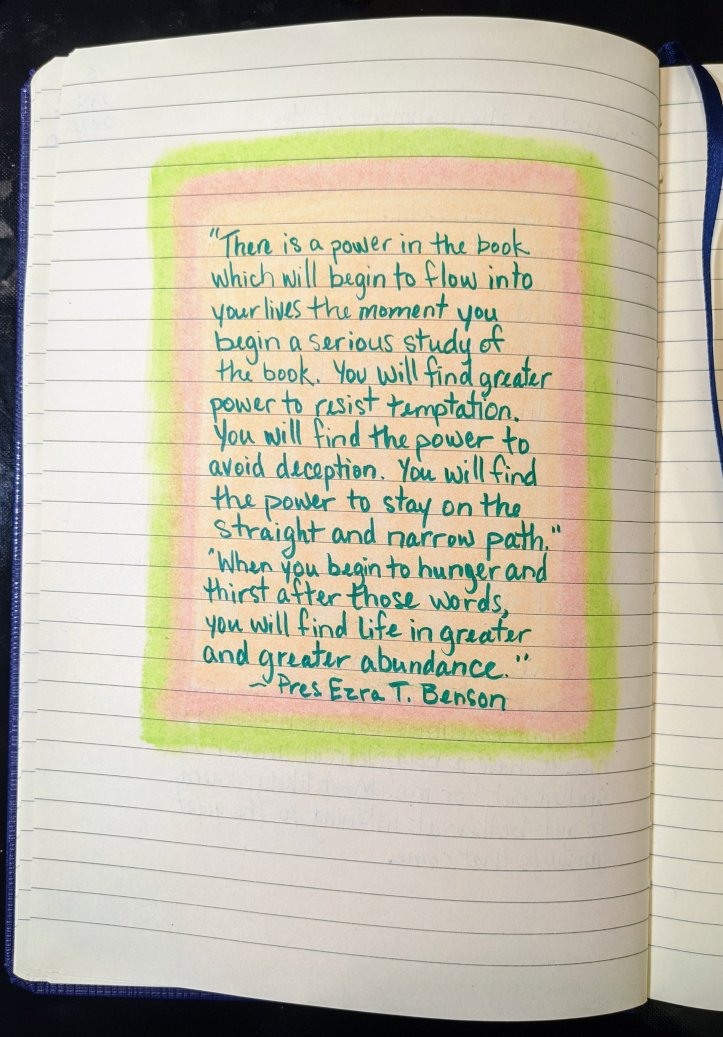 "There is a power in the book
which will begin to flow into
your lives the moment you
begin a serious study of
the book. You will find greater
power to resist temptation.
You will find the power to
avoid deception. You will find
the power to stay on the
straight and narrow path."
"When you begin to hunger and
thirst after those words,
you will find life in greater
and greater abundance."
~Pres Ezra T. Benson